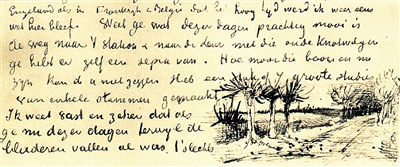 Engeland als in Frankrijk & België dat het hoog tijd werd ik weer eens
wel hier bleef. Weet ge wat dezer dagen prachtig mooi is
de weg naar 't station & naar de leur met die oude knotwilgen
ge hebt er zelf een sepia van. Hoe mooi die boomen nu
zijn kan ik u niet zeggen. Heb een groote studies
van enkele stammen gemaakt
Ik weet vast en zeker dat als
ge nu dezer dagen terwijl de
bladeren vallen al was 't slechts